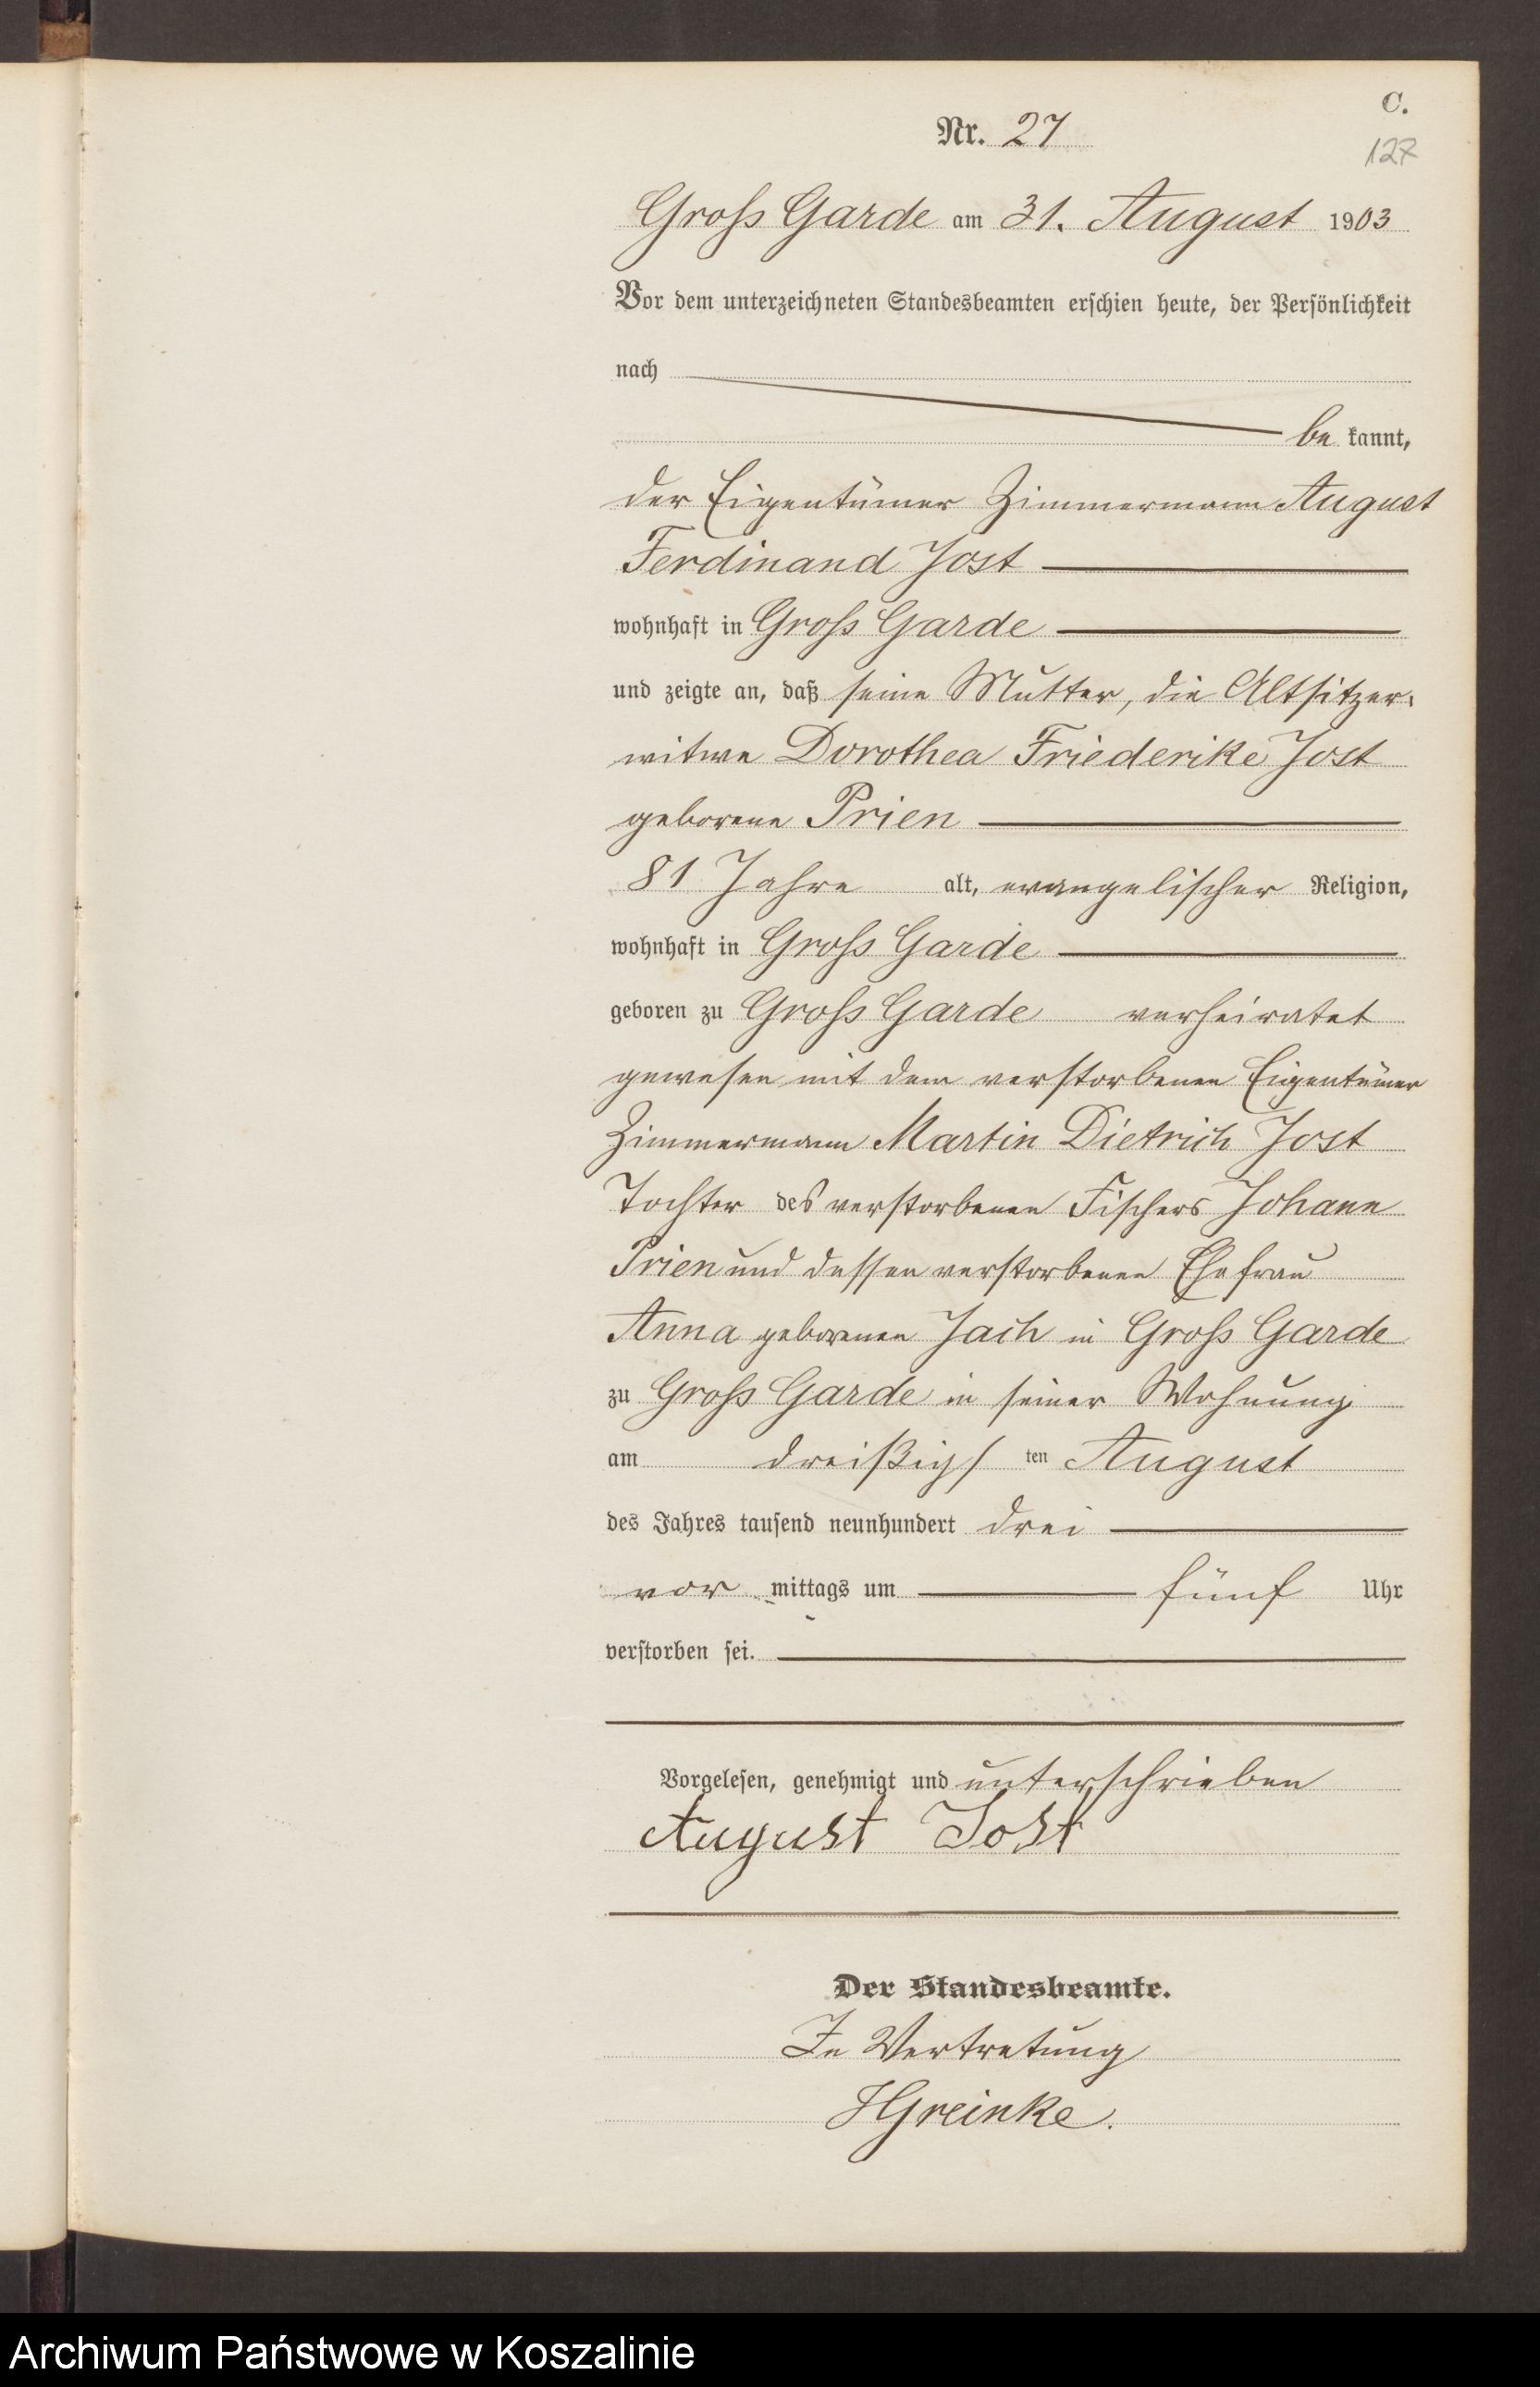 C.
Nr. 27
127
Gross Garde am 31. August 1903
Vor dem unterzeichneten Standesbeamten erschien heute, der Persönlichkeit
nach
be kannt,
der Eigentümer Zimmermann August
Ferdinand Jost
wohnhaft in Gross Garde
und zeigte an, daß seine Mutter, die Altsitzer-
witwe Dorothea Friederike Jost
geborene Prien
81 Jahre alt, evangelischer Religion,
wohnhaft in Gross Garde
geboren zu Gross Garde verheiratet
gewesen mit dem verstorbenen Eigentümer
Zimmermann Martin Dietrich Jost
Tochter des verstorbenen Fischers Johann
Prien und dessen verstorbenen Ehefrau
Anna geborenen Jach in Gross Garde
zu Gross Garde in seiner Wohnung
am dreißigs ten August
des Jahres tausend neunhundert drei
vor mittags um fünf Uhr
verstorben sei.
Vorgelesen, genehmigt und unterschrieben
August Jost
Der Standesbeamte.
In Vertretung
HGreinke.
Archiwum Państwowe w Koszalinie